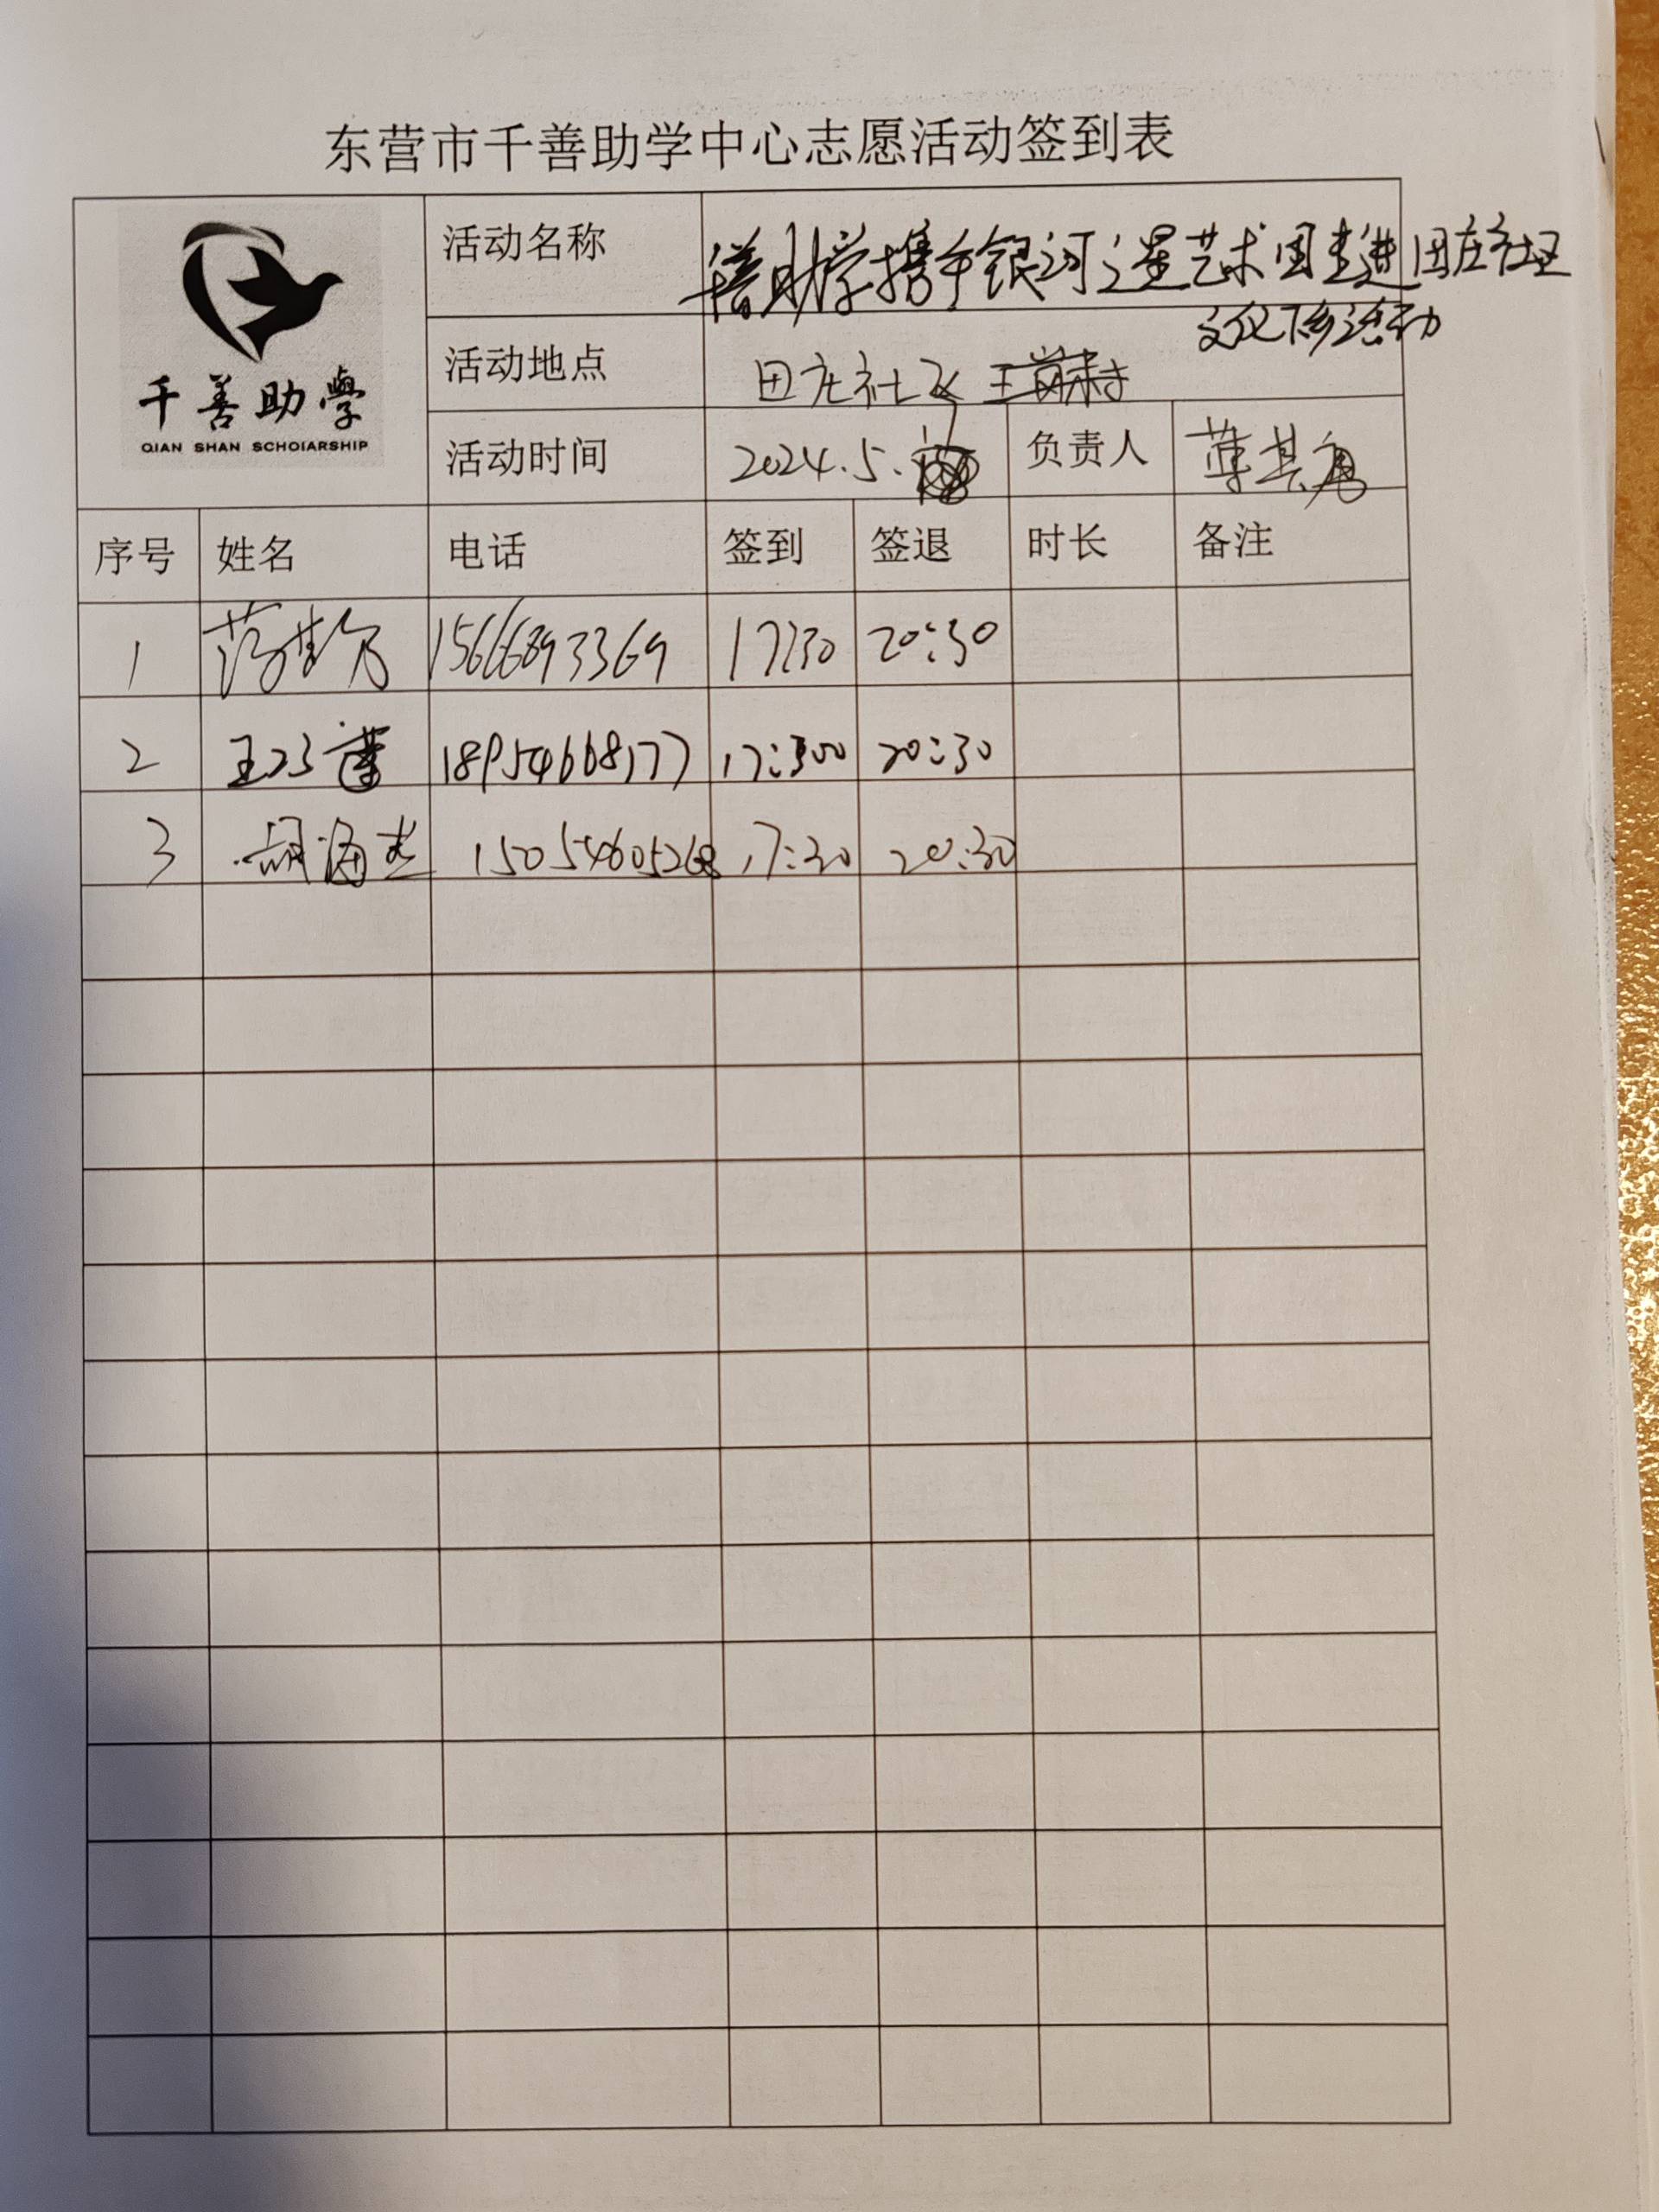 东营市千善助学中心志愿活动签到表
千善助學
QIAN SHAN SCHOlARSHIP
活动名称 千善助学携手银河之星艺术团走进田庄社区
文化下乡活动
活动地点 田庄社区
活动时间 2024.5. 负责人
序号 姓名 电话 签到 签退 时长 备注
1 15666893369 17:30 20:30
2 18954668177 17:30 20:30
3 胡海 15054605268 17:30 20:30